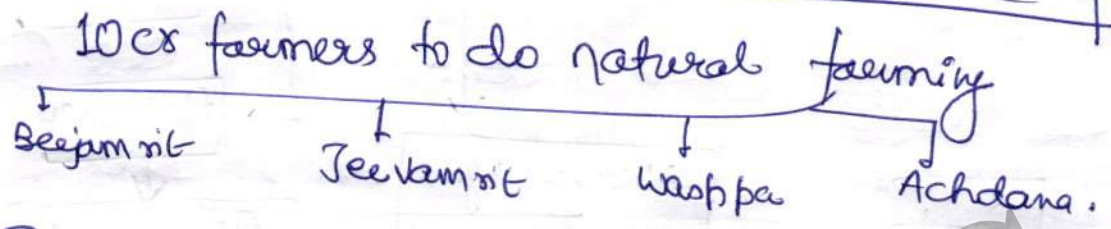 10cr farmers to do natural farming
Beejamrit Jeevamrit Waappa Achdana.